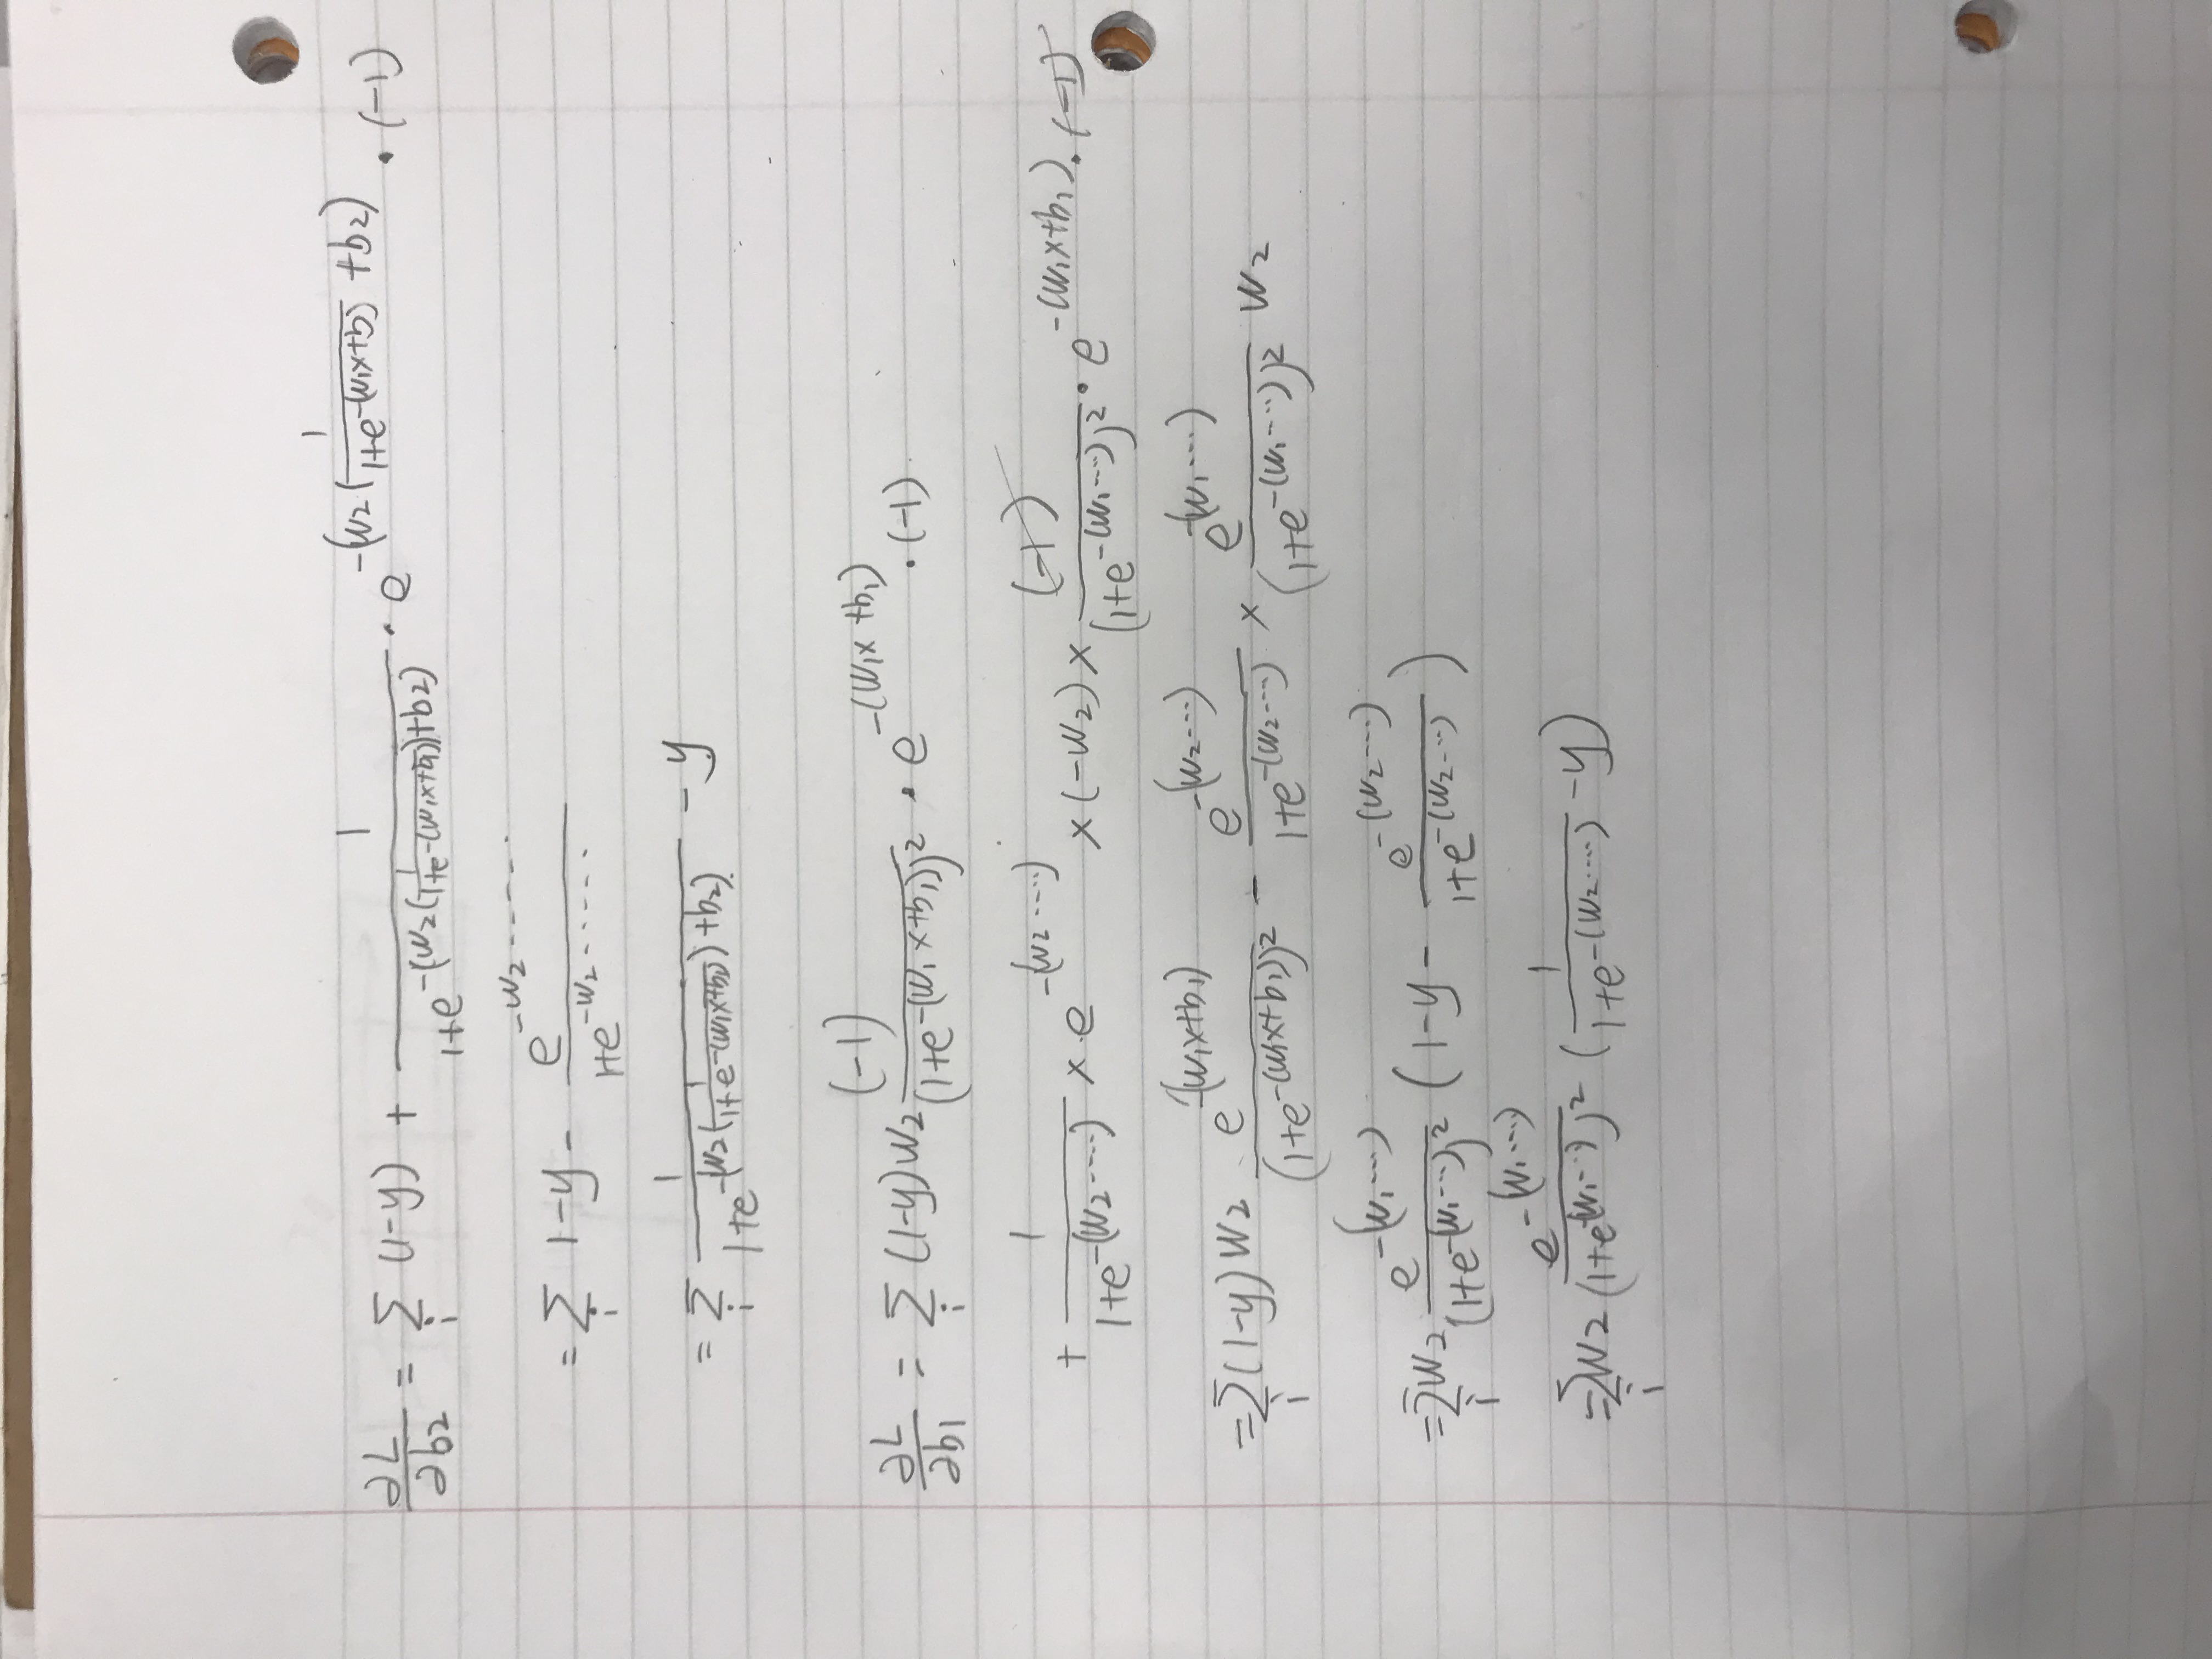 ∂L/∂b2 = Σ_i (1-y) + 1/(1+e^{-(w2(1/(1+e^{-(w1x+b1)}))+b2)}) · e^{-(w2(1/(1+e^{-(w1x+b)}) +b2)} · (-1)
= Σ_i 1-y - e^{-w2 ------}/(1+e^{-w2 ------})
= Σ_i 1/(1+e^{-(w2(1/(1+e^{-(w1x+b1)}))+b2)}) - y
∂L/∂b1 = Σ_i (1-y)w2 (-1)/(1+e^{-(w1x+b1)})^2 · e^{-(w1x+b1)} · (-1)
+ 1/(1+e^{-(w2 ····)}) × e^{-(w2 ····)} × (-w2) × (-1)/(1+e^{-(w1 ···)})^2 · e^{-(w1x+b1)} · (-1)
= Σ_i (1-y) w2 e^{-(w1x+b1)}/(1+e^{-(w1x+b1)})^2 - e^{-(w2 ···)}/(1+e^{-(w2 ···)}) × e^{-(w1 ····)}/(1+e^{-(w1 ····)})^2 w2
= Σ_i w2 e^{-(w1 ···)}/(1+e^{-(w1 ···)})^2 (1-y- e^{-(w2 ···)}/(1+e^{-(w2 ···)}))
= Σ_i w2 e^{-(w1 ····)}/(1+e^{-(w1 ···)})^2 (1/(1+e^{-(w2 ····)}) -y)